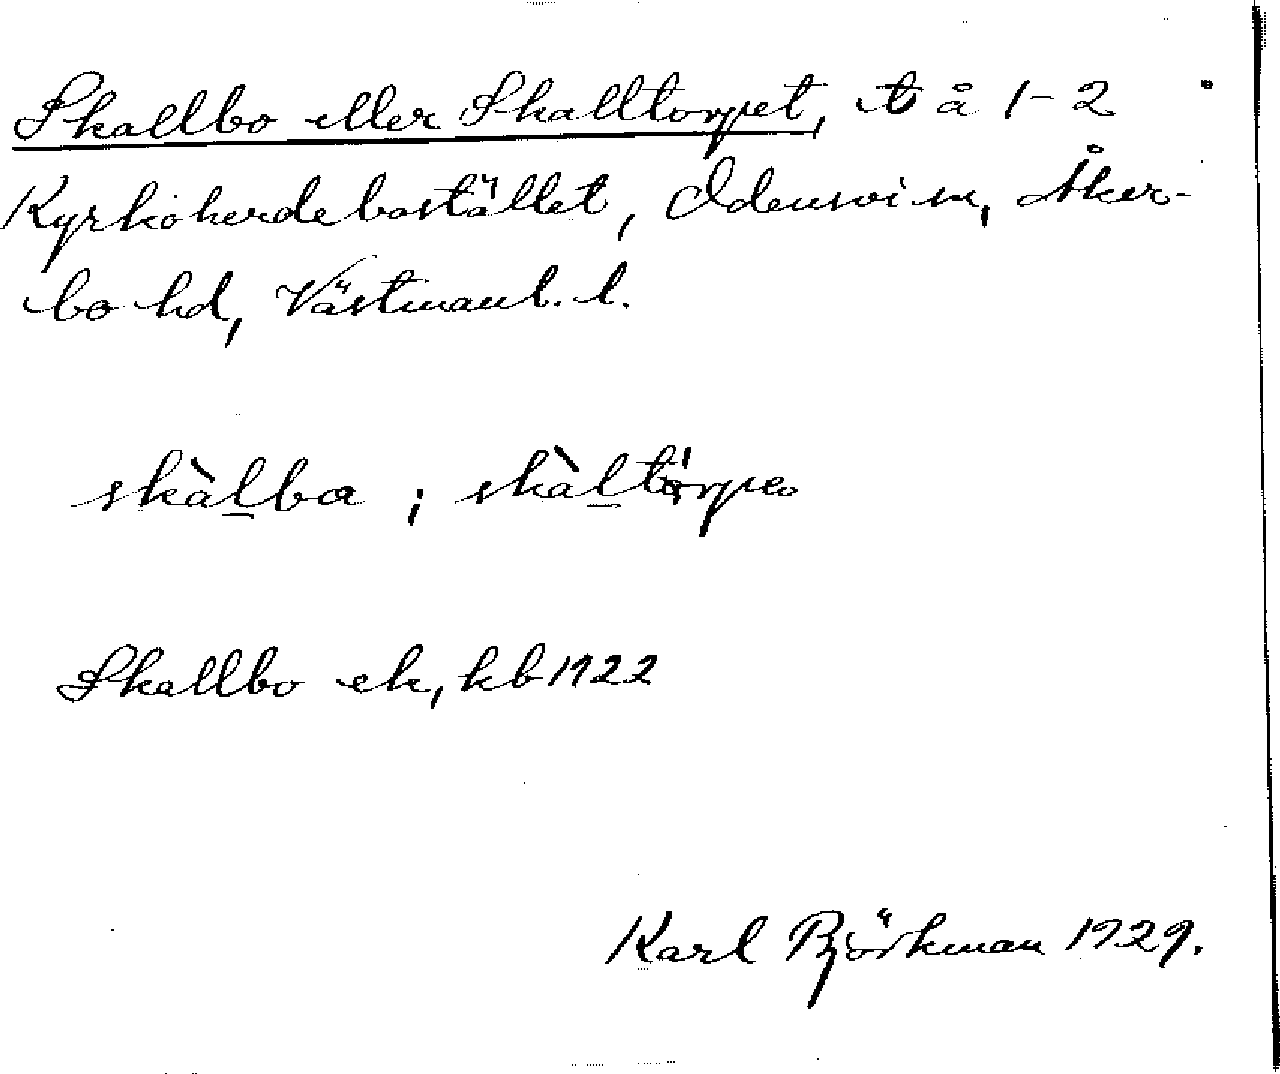 Skallbo eller Skalltorpet, t å 1-2
Kyrkoherdebostället, Odensvi sn, Åker-
bo hd, Västmanl. l.
skàlba ; skàltórpe
Skallbo ek, kb 1922
Karl Björkman 1929.